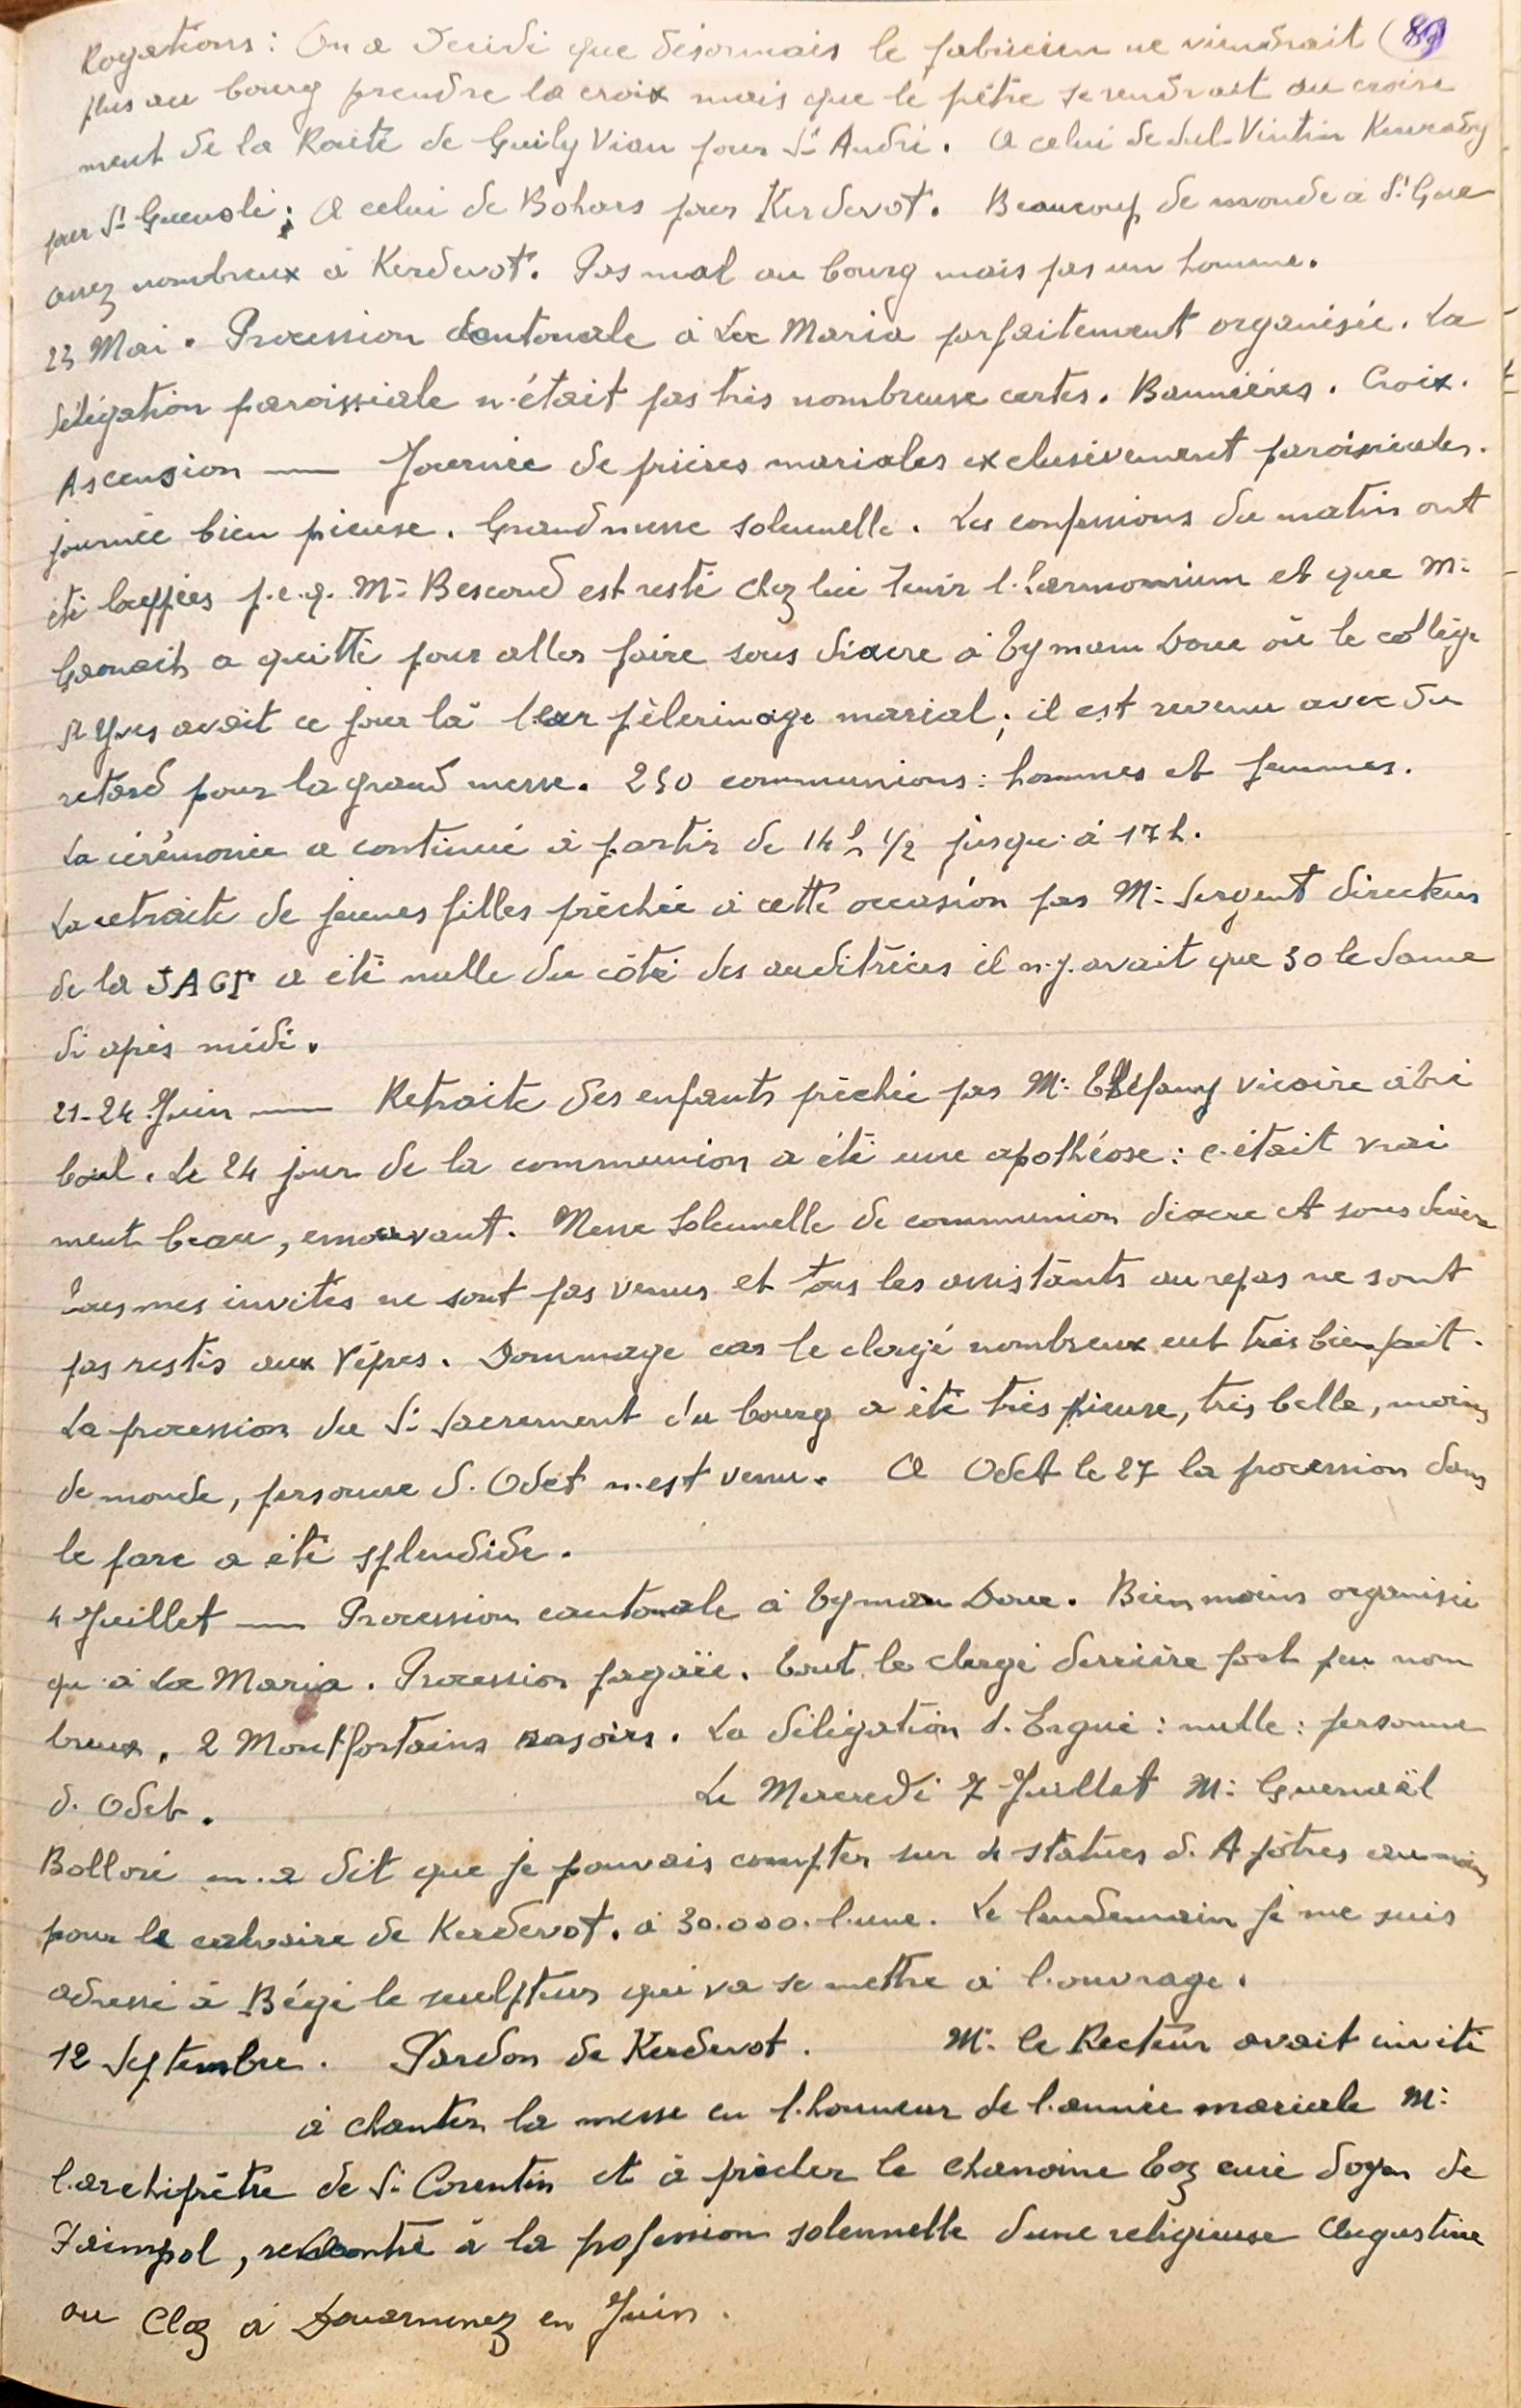 Rogations : On a décidé que désormais le fabricien ne viendrait (89)
plus au bourg prendre la croix mais que le prêtre se rendrait au croise
ment de la Route de Guily Vian pour St André. A celui de
pour St Guenolé ; A celui de Bohars pour Kerdevot. Beaucoup de monde à St Gue
assez nombreux à Kerdevot. Pas mal au bourg mais pas un homme.
23 Mai . Procession cantonale à Loc Maria parfaitement organisée. La
délégation paroissiale n'était pas très nombreuse certes. Bannières. Croix.
Ascension — Journée de prières mariales exclusivement paroissiales.
journée bien pieuse. Grand messe solennelle. Les confessions du matin ont
été loupées p.c.q. Mr Bescond est resté chez lui tenir l'harmonium et que Mr
a quitté pour aller faire sous diacre à Ty mam Doue où le collège
St Yves avait ce jour là leur pèlerinage marial ; il est revenu avec du
retard pour la grand messe. 250 communions : hommes et femmes.
La cérémonie a continué à partir de 14 h 1/2 jusqu'à 17 h.
La retraite de jeunes filles prêchée à cette occasion par Mr Sergent directeur
de la a été nulle du côté des auditrices il n'y avait que 30 le same
di après midi.
21-24 Juin — Retraite des enfants prêchée par Mr vicaire à Bri
. Le 24 jour de la communion a été une apothéose : c'était vrai
ment beau, émouvant. Messe solennelle de communion diacre et sous diacre
Tous mes invités ne sont pas venus et tous les assistants au repas ne sont
pas restés aux Vêpres. Dommage car le clergé nombreux eut très bien fait.
La procession du St Sacrement du bourg a été très pieuse, très belle, moins
de monde, personne d'Odet n'est venu. A Odet le 27 la procession dans
le parc a été splendide.
4 Juillet — Procession cantonale à Ty mam Doue. Bien moins organisée
qu'à Loc Maria. Procession pagaïe. Tout le clergé derrière fort peu nom
breux. 2 Montfortains rasoirs. La délégation d'Ergué : nulle : personne
d'Odet. Le Mercredi 7 Juillet Mr Guenaël
Bolloré m'a dit que je pouvais compter sur 4 statues d'Apôtres au moins
pour le calvaire de Kerdevot. à 30.000 l'une. Le lendemain je me suis
adressé à Bégé le sculpteur qui va se mettre à l'ouvrage.
12 Septembre . Pardon de Kerdevot . Mr le Recteur avait invité
à chanter la messe en l'honneur de l'année mariale Mr
l'archiprêtre de St Corentin et à prêcher le chanoine curé doyen de
Paimpol, rencontré à la profession solennelle d'une religieuse Augustine
au à Douarnenez en Juin .